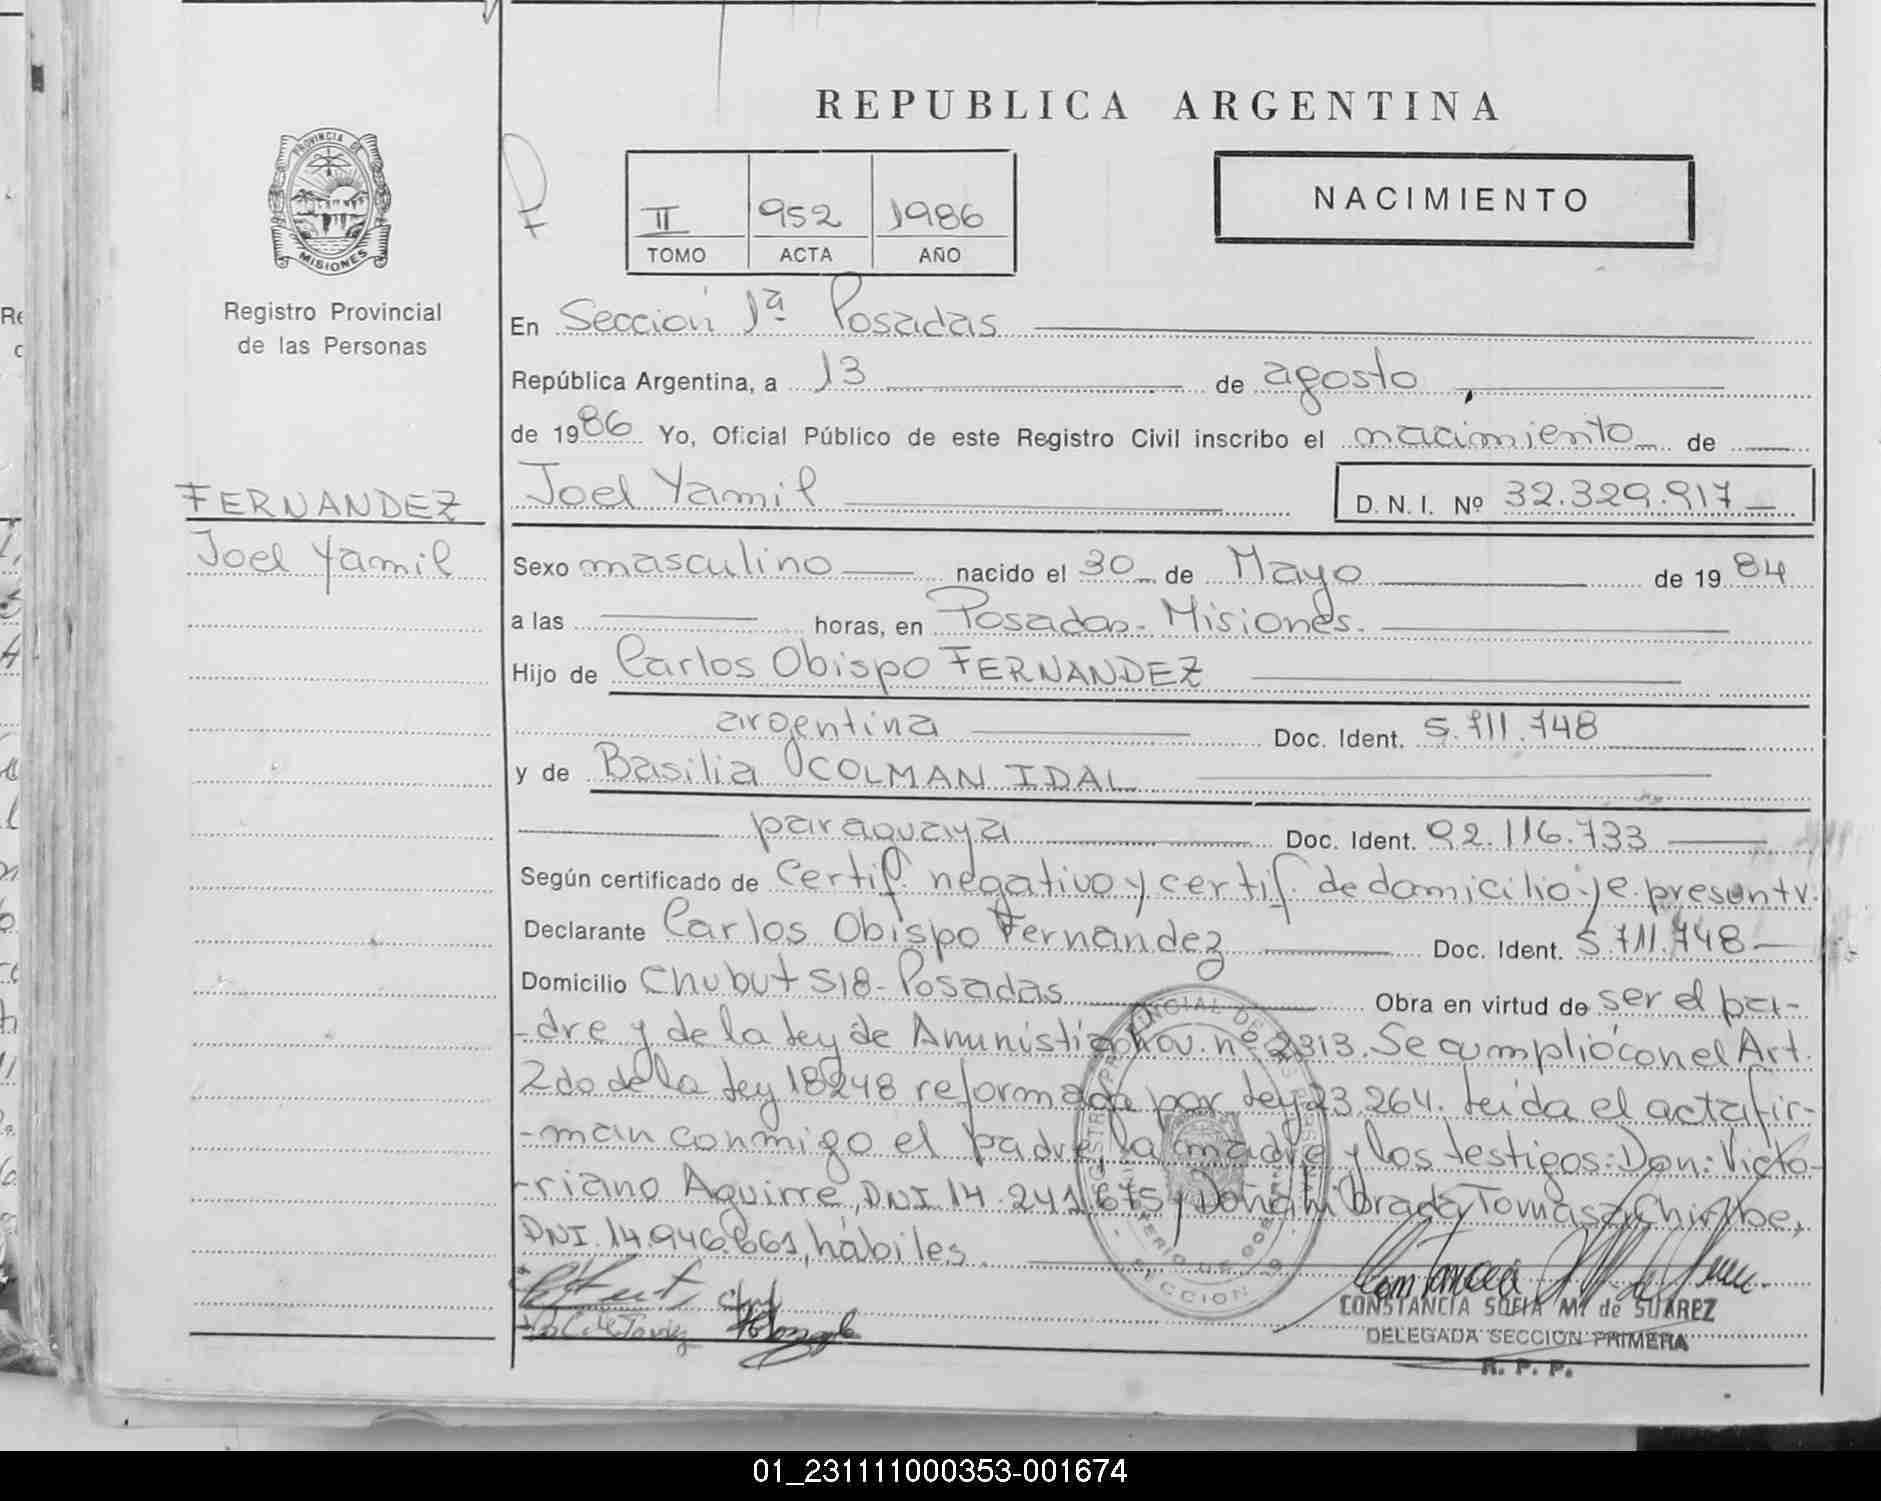 REPUBLICA ARGENTINA
PROVINCIA DE
MISIONES
Registro Provincial
de las Personas
II 952 1986
TOMO ACTA AÑO
NACIMIENTO
En Sección 1ª Posadas
República Argentina, a 13 de agosto
de 1986 Yo, Oficial Público de este Registro Civil inscribo el nacimiento de
FERNANDEZ
Joel Yamil
Joel Yamil D. N. I. Nº 32.329.917
Sexo masculino nacido el 30 de Mayo de 1984
a las horas, en Posadas - Misiones.
Hijo de Carlos Obispo FERNANDEZ
argentina Doc. Ident. 5.711.748
y de Basilia COLMAN IDAL
paraguaya Doc. Ident. 92.116.733
Según certificado de Certif. negativo y certif. de domicilio
Declarante Carlos Obispo Fernández Doc. Ident. 5.711.748
Domicilio Chubut 518 - Posadas Obra en virtud de ser el pa-
-dre y de la ley de Amnistia nº 2313. Se cumplió con el Art.
2do de la ley 18248 reformada por ley 23.264. Leída el acta fir-
-man conmigo el padre, la madre y los testigos: Don: Victo-
-riano Aguirre, DNI 14.241.675 y Doña Librada Tomasa
DNI. 14.946.661, hábiles.
CONSTANCIA SOFIA M. de SUAREZ
DELEGADA SECCION PRIMERA
R. P. P.
01_231111000353-001674